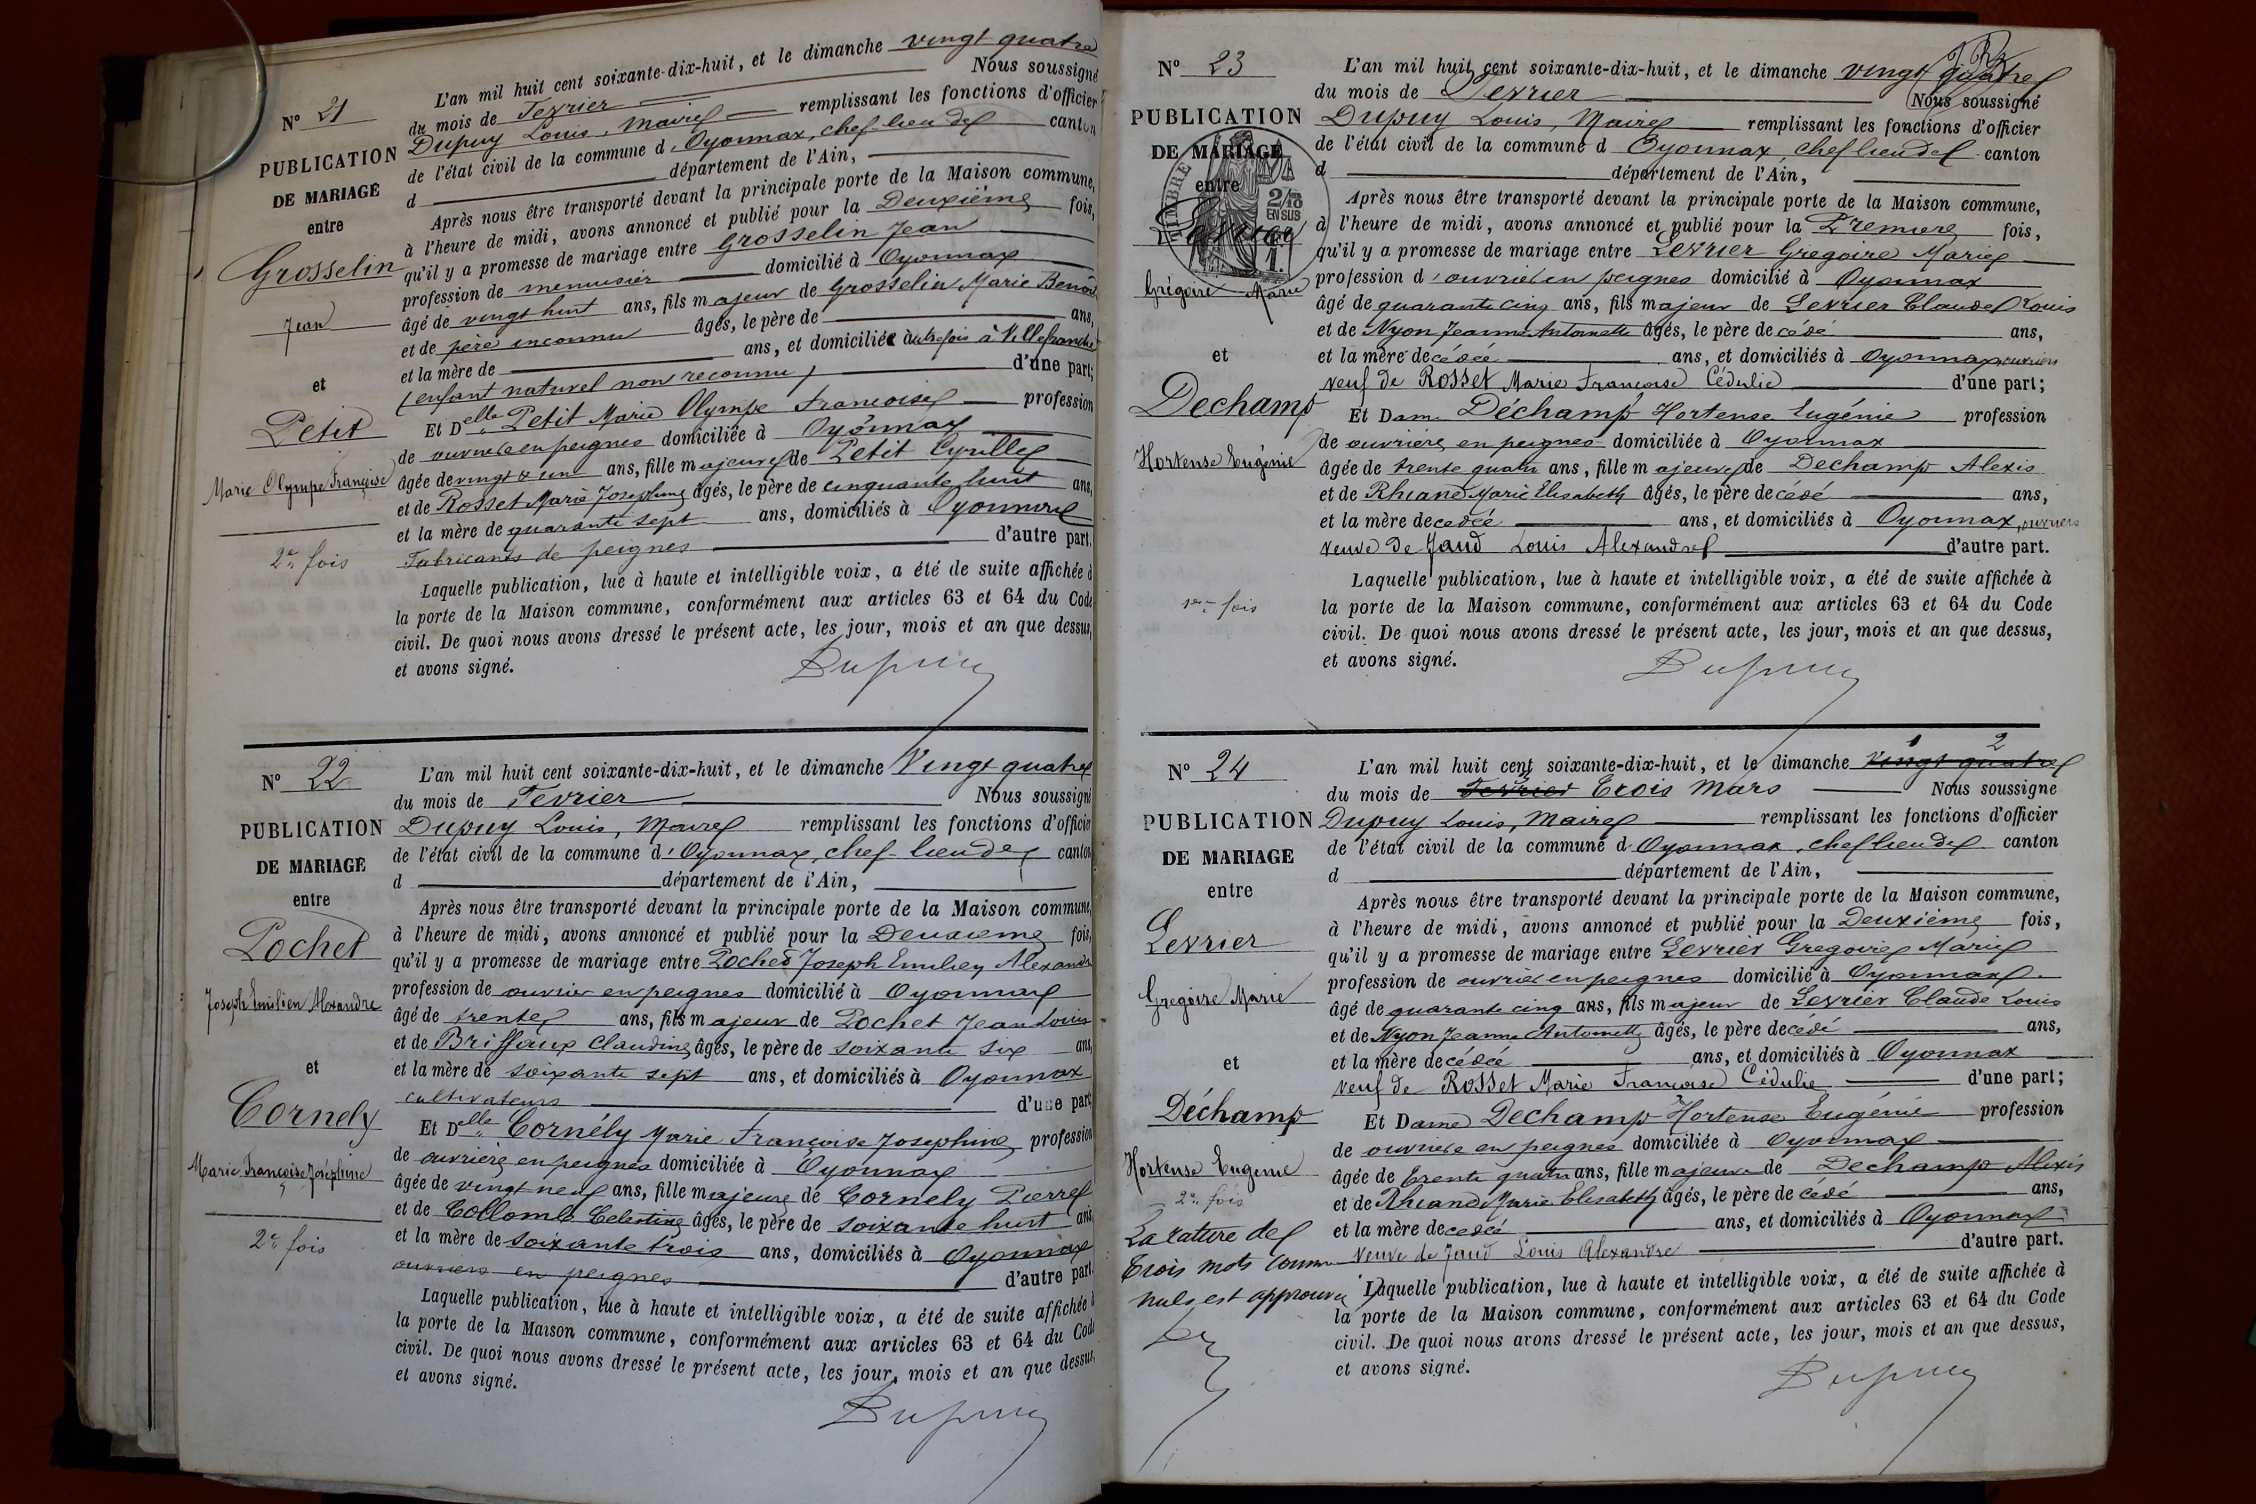 L'an mil huit cent soixante-dix-huit, et le dimanche vingt quatre
du mois de Fevrier Nous soussigné
Dupuy Louis, Maire remplissant les fonctions d'officier
de l'état civil de la commune d'Oyonnax, chef-lieu de canton
d département de l'Ain,
Après nous être transporté devant la principale porte de la Maison commune,
à l'heure de midi, avons annoncé et publié pour la Deuxième fois,
qu'il y a promesse de mariage entre Grosselin Jean
profession de menuisier domicilié à Oyonnax
âgé de vingt huit ans, fils majeur de Grosselin Marie Benoit
et de père inconnu âgés, le père de ans,
et la mère de ans, et domiciliée autrefois à Villefranche
(enfant naturel non reconnu) d'une part;
Et Delle Petit Marie Olympe Françoise profession
de ouvrière en peignes domiciliée à Oyonnax
âgée de vingt & un ans, fille majeure de Petit Cyrille
et de Rosset Marie Josephine âgés, le père de cinquante huit ans,
et la mère de quarante sept ans, domiciliés à Oyonnax
Fabricants de peignes d'autre part.
Laquelle publication, lue à haute et intelligible voix, a été de suite affichée à
la porte de la Maison commune, conformément aux articles 63 et 64 du Code
civil. De quoi nous avons dressé le présent acte, les jour, mois et an que dessus,
et avons signé.
Dupuy
N° 21
PUBLICATION
DE MARIAGE
entre
Grosselin
Jean
et
Petit
Marie Olympe Françoise
2e fois
N° 22
PUBLICATION
DE MARIAGE
entre
Pochet
Joseph Emilien Alexandre
et
Cornely
Marie Françoise Joséphine
2e fois
L'an mil huit cent soixante-dix-huit, et le dimanche Vingt quatre
du mois de Fevrier Nous soussigné
Dupuy Louis, Maire remplissant les fonctions d'officier
de l'état civil de la commune d'Oyonnax, chef-lieu de canton
d département de l'Ain,
Après nous être transporté devant la principale porte de la Maison commune,
à l'heure de midi, avons annoncé et publié pour la Deuxieme fois,
qu'il y a promesse de mariage entre Pochet Joseph Emilien Alexandre
profession de ouvrier en peignes domicilié à Oyonnax
âgé de trente ans, fils majeur de Pochet Jean Louis
et de Briffaux Claudine âgés, le père de soixante six ans,
et la mère de soixante sept ans, et domiciliés à Oyonnax
cultivateurs d'une part
Et Delle Cornély Marie Françoise Josephine profession
de ouvrière en peignes domiciliée à Oyonnax
âgée de vingt neuf ans, fille majeure de Cornely Pierre
et de Collomb Celestine âgés, le père de soixante huit ans,
et la mère de soixante trois ans, domiciliés à Oyonnax
ouvriers en peignes d'autre part.
Laquelle publication, lue à haute et intelligible voix, a été de suite affichée à
la porte de la Maison commune, conformément aux articles 63 et 64 du Code
civil. De quoi nous avons dressé le présent acte, les jour, mois et an que dessus,
et avons signé.
Dupuy
N° 23
PUBLICATION
DE MARIAGE
entre
TIMBRE
2/10
EN SUS
Levrier
Grégoire Marie
et
Dechamp
Hortense Eugénie
1ere fois
L'an mil huit cent soixante-dix-huit, et le dimanche vingt quatre
du mois de Fevrier Nous soussigné
Dupuy Louis, Maire remplissant les fonctions d'officier
de l'état civil de la commune d Oyonnax, chef lieu de canton
d département de l'Ain,
Après nous être transporté devant la principale porte de la Maison commune,
à l'heure de midi, avons annoncé et publié pour la Premiere fois,
qu'il y a promesse de mariage entre Levrier Gregoire Marie
profession d'ouvrier en peignes domicilié à Oyonnax
âgé de quarante cinq ans, fils majeur de Levrier Claude Louis
et de Nyon Jeanne Antoinette âgés, le père decédé ans,
et la mère decédée ans, et domiciliés à Oyonnax, ouvriers
veuf de Rosset Marie Françoise Cédulie d'une part;
Et Dame Déchamp Hortense Eugénie profession
de ouvrière en peignes domiciliée à Oyonnax
âgée de trente quatre ans, fille majeure de Dechamp Alexis
et de Rhiand Marie Elisabeth âgés, le père decédé ans,
et la mère decedée ans, et domiciliés à Oyonnax, ouvriers
veuve de Jaud Louis Alexandre d'autre part.
Laquelle publication, lue à haute et intelligible voix, a été de suite affichée à
la porte de la Maison commune, conformément aux articles 63 et 64 du Code
civil. De quoi nous avons dressé le présent acte, les jour, mois et an que dessus,
et avons signé.
Dupuy
N° 24
PUBLICATION
DE MARIAGE
entre
Levrier
Gregoire Marie
et
Déchamp
Hortense Eugenie
2e fois
La rature de
trois mots comme
nuls est approuvée
L'an mil huit cent soixante-dix-huit, et le dimanche vingt quatre
1 2
du mois de Fevrier Trois Mars Nous soussigné
3
Dupuy Louis, Maire remplissant les fonctions d'officier
de l'état civil de la commune d Oyonnax, chef lieu de canton
d département de l'Ain,
Après nous être transporté devant la principale porte de la Maison commune,
à l'heure de midi, avons annoncé et publié pour la Deuxième fois,
qu'il y a promesse de mariage entre Levrier Gregoire Marie
profession de ouvrier en peignes domicilié à Oyonnax
âgé de quarante cinq ans, fils majeur de Levrier Claude Louis
et de Nyon Jeanne Antoinette âgés, le père decédé ans,
et la mère decédée ans, et domiciliés à Oyonnax
veuf de Rosset Marie Françoise Cédulie d'une part;
Et Dame Dechamp Hortense Eugénie profession
de ouvrière en peignes domiciliée à Oyonnax
âgée de trente quatre ans, fille majeure de Dechamp Alexis
et de Rhiand Marie Elisabeth âgés, le père decédé ans,
et la mère decedée ans, et domiciliés à Oyonnax
veuve de Jaud Louis Alexandre d'autre part.
Laquelle publication, lue à haute et intelligible voix, a été de suite affichée à
la porte de la Maison commune, conformément aux articles 63 et 64 du Code
civil. De quoi nous avons dressé le présent acte, les jour, mois et an que dessus,
et avons signé.
Dupuy